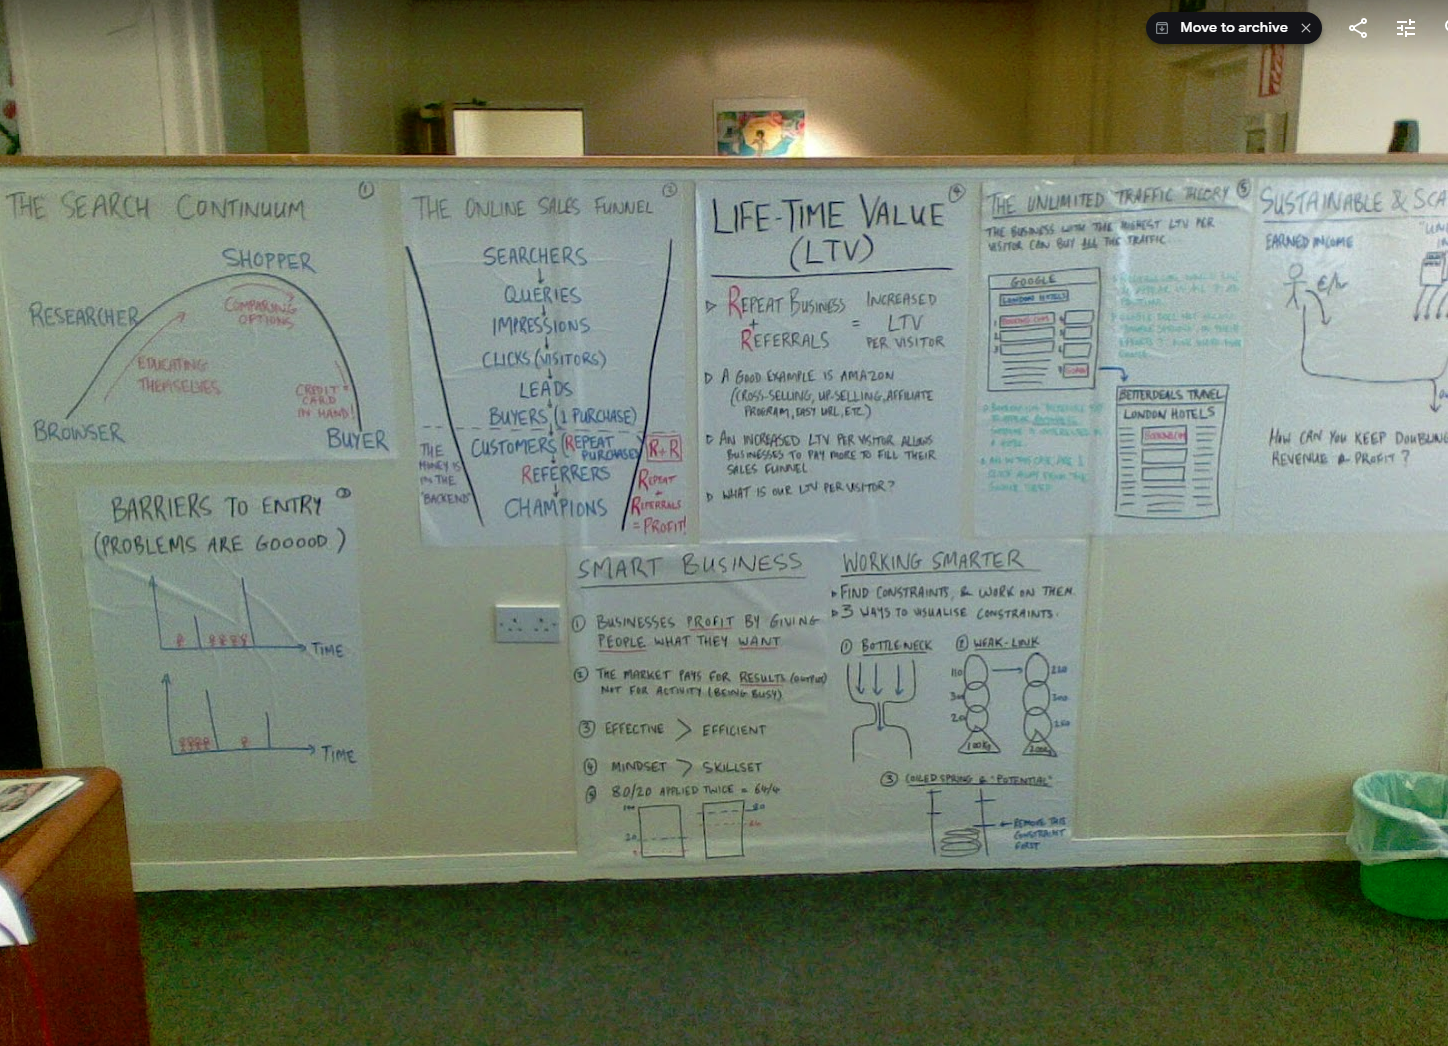 Move to archive
THE SEARCH CONTINUUM
1
SHOPPER
RESEARCHER
COMPARING
OPTIONS
EDUCATING
THEMSELVES
CREDIT
CARD
IN HAND!
BROWSER
BUYER
BARRIERS TO ENTRY
(PROBLEMS ARE GOOOOD)
TIME
TIME
THE ONLINE SALES FUNNEL
2
SEARCHERS
QUERIES
IMPRESSIONS
CLICKS (VISITORS)
LEADS
BUYERS (1 PURCHASE)
CUSTOMERS (REPEAT
PURCHASE)
REFERRERS
CHAMPIONS
THE
MONEY IS
IN THE
"BACKEND"
R+R
REPEAT
+
REFERRALS
= PROFIT!
LIFE-TIME VALUE
(LTV)
4
REPEAT BUSINESS
+
REFERRALS
= INCREASED
LTV
PER VISITOR
A GOOD EXAMPLE IS AMAZON
(CROSS-SELLING, UP-SELLING, AFFILIATE
PROGRAM, EASY URL, ETC)
AN INCREASED LTV PER VISITOR ALLOWS
BUSINESSES TO PAY MORE TO FILL THEIR
SALES FUNNEL
WHAT IS OUR LTV PER VISITOR?
THE UNLIMITED TRAFFIC THEORY
5
THE BUSINESS WITH THE HIGHEST LTV PER
VISITOR CAN BUY ALL THE TRAFFIC
GOOGLE
LONDON HOTELS
1
2
3
BETTERDEALS TRAVEL
LONDON HOTELS
SUSTAINABLE & SCA
EARNED INCOME
£/hr
HOW CAN YOU KEEP DOUBLING
REVENUE & PROFIT?
SMART BUSINESS
1 BUSINESSES PROFIT BY GIVING
PEOPLE WHAT THEY WANT
2 THE MARKET PAYS FOR RESULTS (OUTPUT)
NOT FOR ACTIVITY (BEING BUSY)
3 EFFECTIVE > EFFICIENT
4 MINDSET > SKILLSET
5 80/20 APPLIED TWICE = 64/4
100
20
80
WORKING SMARTER
FIND CONSTRAINTS, & WORK ON THEM.
3 WAYS TO VISUALISE CONSTRAINTS.
1 BOTTLE-NECK
2 WEAK-LINK
100Kg
200Kg
3 COILED SPRING & "POTENTIAL"
REMOVE THIS
CONSTRAINT
FIRST